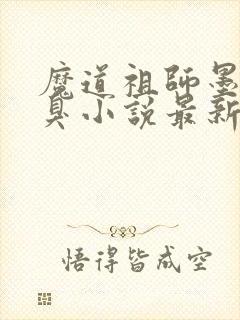 魔道祖師墨
臭小說最新
悟得皆成空